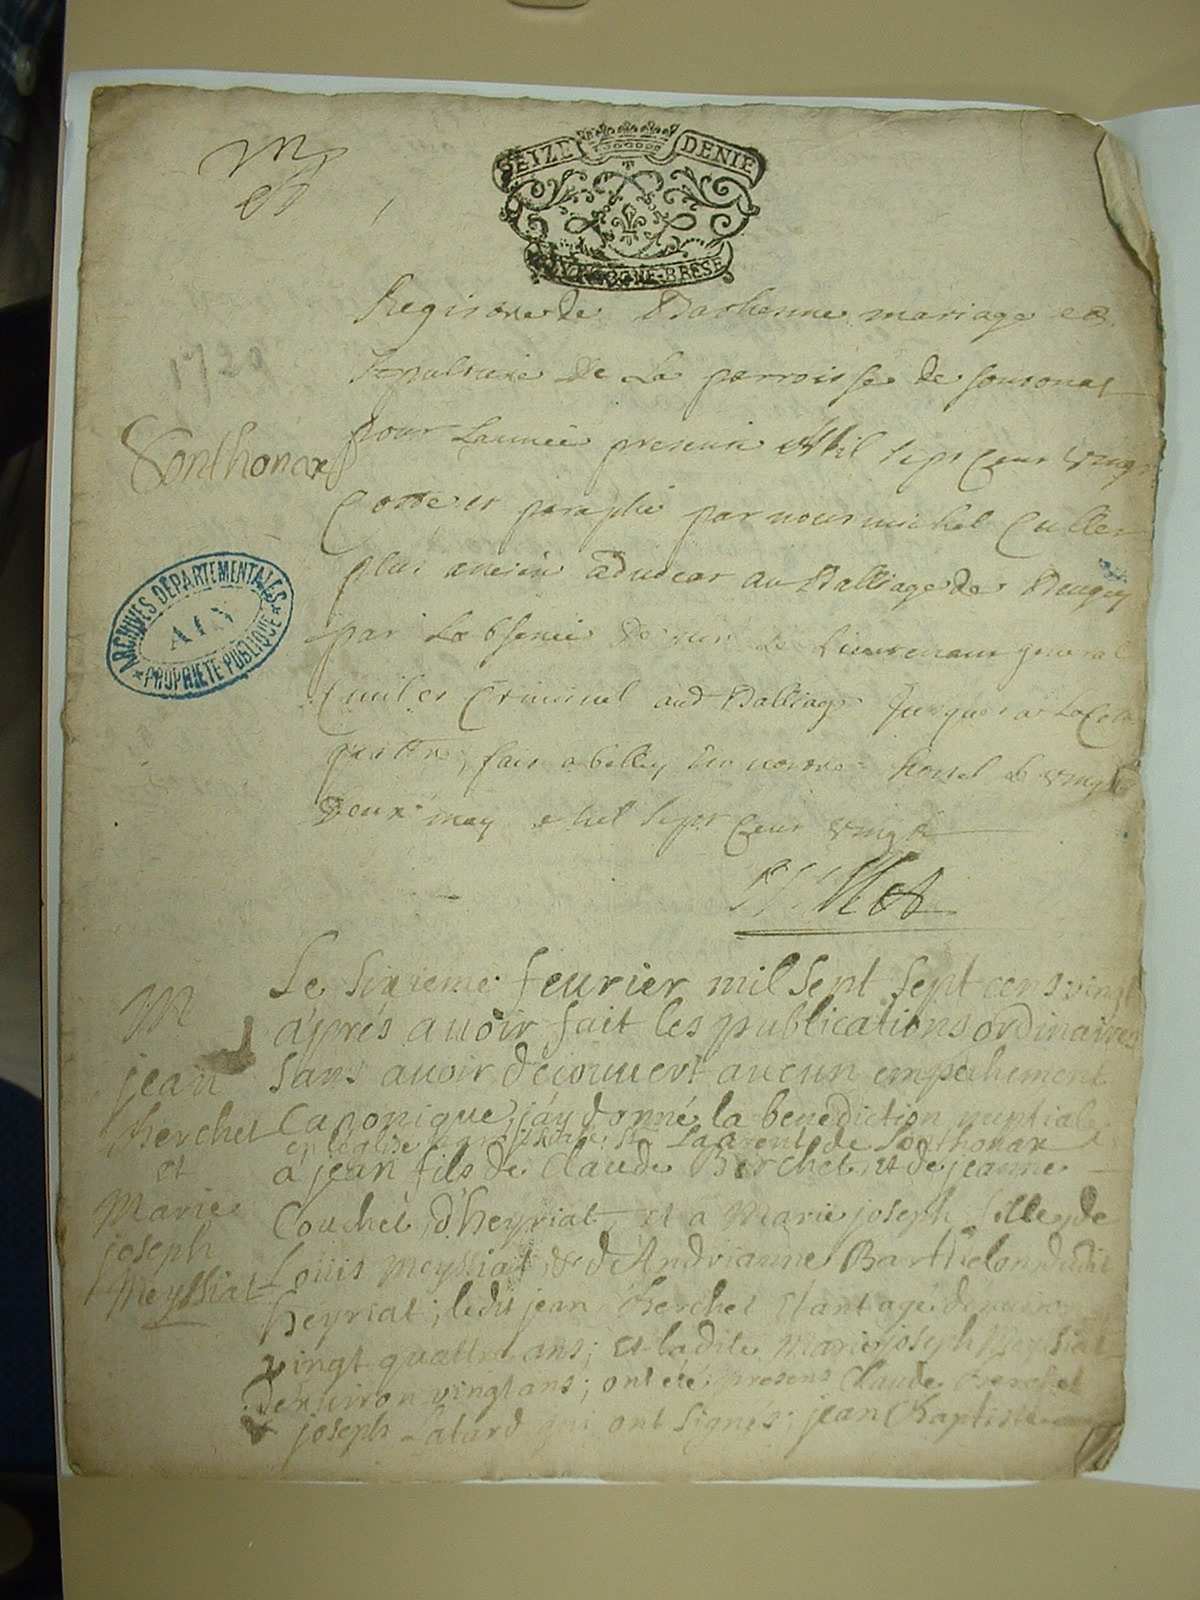 SEIZE DENIE
BOVRGOGNE-BRESE
Registre de Bathemme mariage et
sepulture de La parroisse de sontonas
1720
pour Lannée presente Mil sept Cent vingt
Sonthonax
Cotté et paraphé par nous michel Cullet
plus ancien advocat au Balliage de Beugey
ARCHIVES DÉPARTEMENTALES
AIN
PROPRIÉTÉ PUBLIQUE
par Labsence de mr Le Lieutenant general
Civil et Criminel aud Balliage
quattre, fait a belley En nostre hostel Le vingt
deux may Mil sept Cent vingt
Le sixieme fevrier mil sept sept cens vingt
M
après avoir fait les publications ordinaires
jean
sans avoir découvert aucun empechement
Berchet
Canonique, j'ay donné la benediction nuptiale
en l'église St Laurent de Sonthonax
et
a jean fils de Claude Berchet, et de jeanne
Marie
Couchet, d'heyriat, et a Marie joseph fille de
joseph
Louis Meyssiat, & d'Andrianne Barthelon dudit
Meyssiat
heyriat; ledit jean Berchet étant agé d'environ
vingt quattre ans; et ladite Marie joseph Meyssiat
d'environ vingt ans; ont eté presens Claude Berchet
& joseph Latard qui ont signés; jean Baptiste